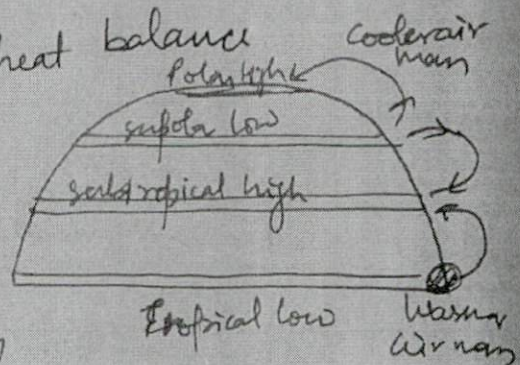 heat balance
Cooler air
mass
Polar high
supola low
subtropical high
Tropical low
Warmer
air mass